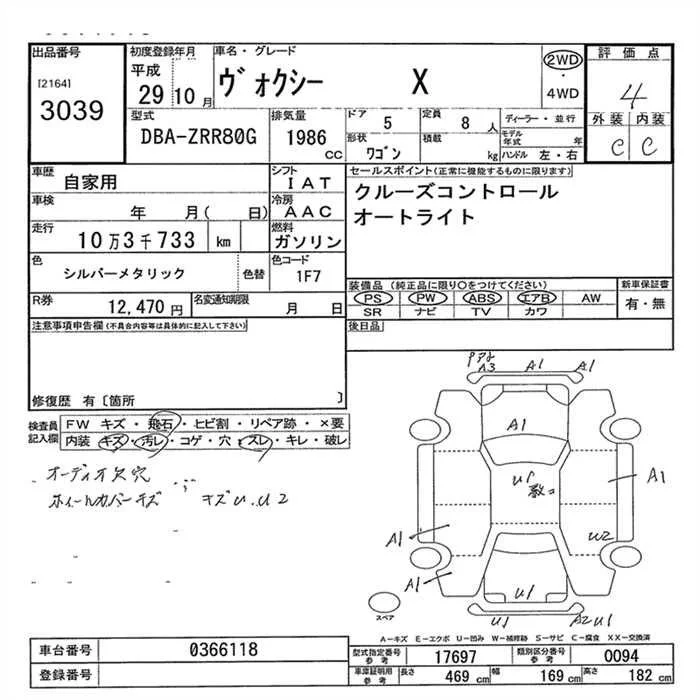 出品番号
[2164]
3039
初度登録年月
平成
29 10 月
車名・グレード
ヴォクシー X
2WD
・
4WD
評価点
4
外装 内装
C C
型式
DBA-ZRR80G
排気量
1986
CC
ドア 5
定員 8 人
形状 ワゴン
積載 kg
ディーラー・並行
モデル年式 年
ハンドル 左・右
車歴 自家用
シフト IAT
車検 年 月( 日)
冷房 AAC
走行 10万3千733 km
燃料 ガソリン
色 シルバーメタリック
色替
色コード 1F7
R券 12,470 円
名変通知期限 月 日
セールスポイント(正常に機能するものに限ります)
クルーズコントロール
オートライト
装備品 (純正品に限り○をつけてください)
PS PW ABS エアB AW
SR ナビ TV カワ
新車保証書
有・無
後日品
注意事項申告欄(不具合内容等は具体的に記入して下さい)
修復歴 有〔箇所 〕
検査員記入欄
FW キズ・飛石・ヒビ割・リペア跡・×要
内装 キズ・汚レ・コゲ・穴・スレ・キレ・破レ
オーディオ欠穴
ホイールカバーキズ キズU.U2
A3 A1 A1
A1
U1
A1
A1
U2
A1
U1
U1
A2U1
スペア
A-キズ E-エクボ U-凹み W-補修跡 S-サビ C-腐食 XX-交換済
車台番号 0366118
登録番号
型式指定番号 参考 17697
類別区分番号 参考 0094
車庫証明用 参考 長さ 469 cm 幅 169 cm 高さ 182 cm